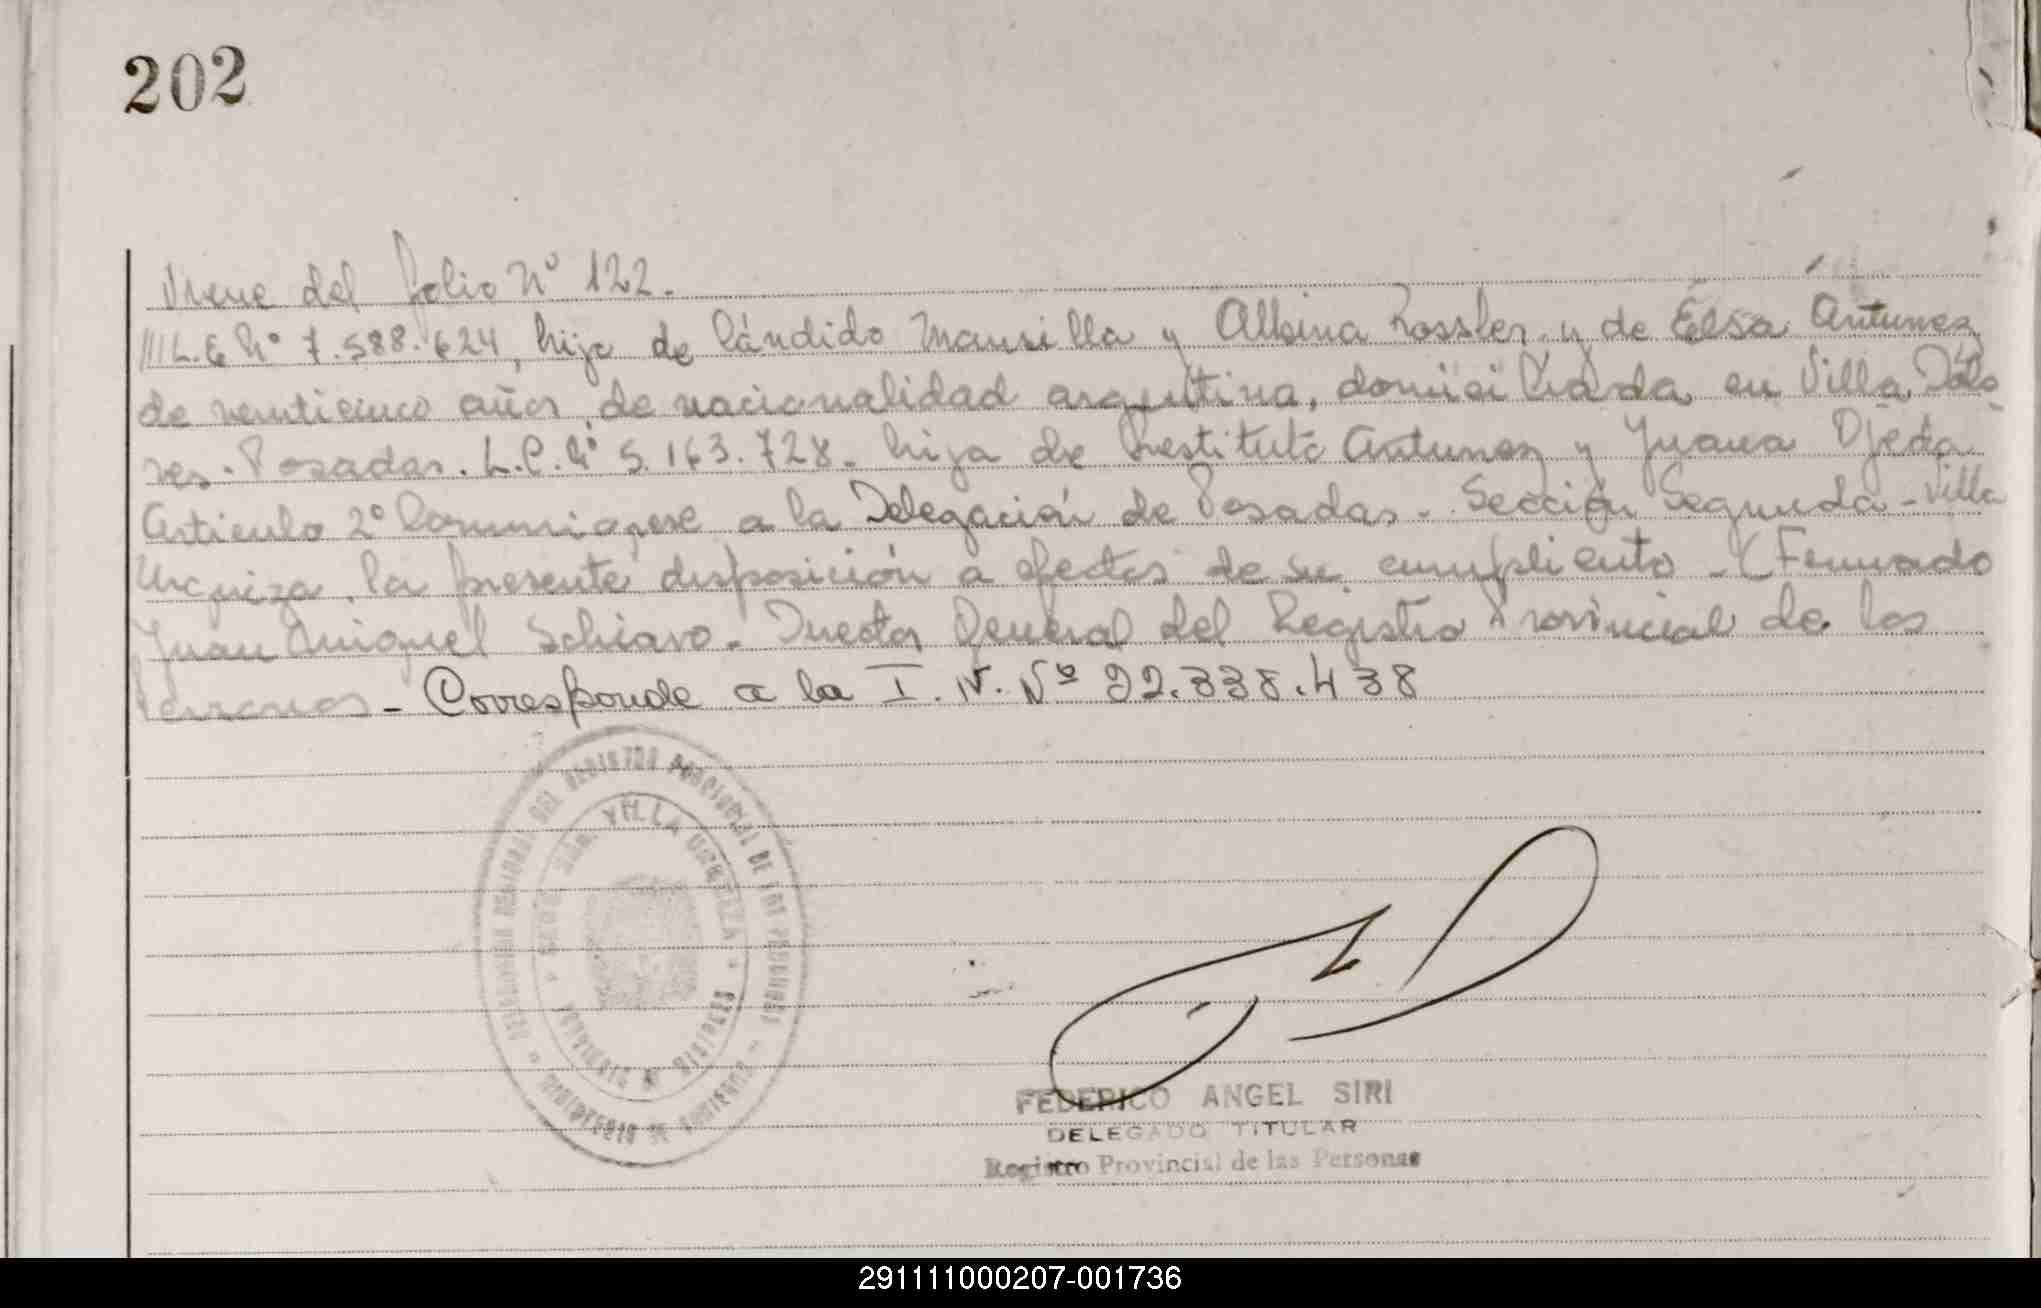 202
Viene del folio Nº 122.
///L.E Nº 7.588.624, hijo de Cándido Mansilla y Albina Rossler y de Elsa Antunez
de veinticinco años, de nacionalidad argentina, domiciliada en Villa Dolo
res. Posadas. L.C. Nº 5.163.728. hija de Restituto Antunez y Juana Ojeda
Articulo 2º Comuniquese a la Delegación de Posadas. Sección Segunda - Villa
Urquiza, la presente disposición a efectos de su cumpliento - (Firmado
Juan Miguel Schiavo. Director General del Registro Provincial de las
Personas - Corresponde a la I. N. Nº 22.338.438
DELEGACION REGIONAL DEL REGISTRO PROVINCIAL DE LAS PERSONAS
SECC. 2da. VILLA URQUIZA
FEDERICO ANGEL SIRI
DELEGADO TITULAR
Registro Provincial de las Personas
291111000207-001736